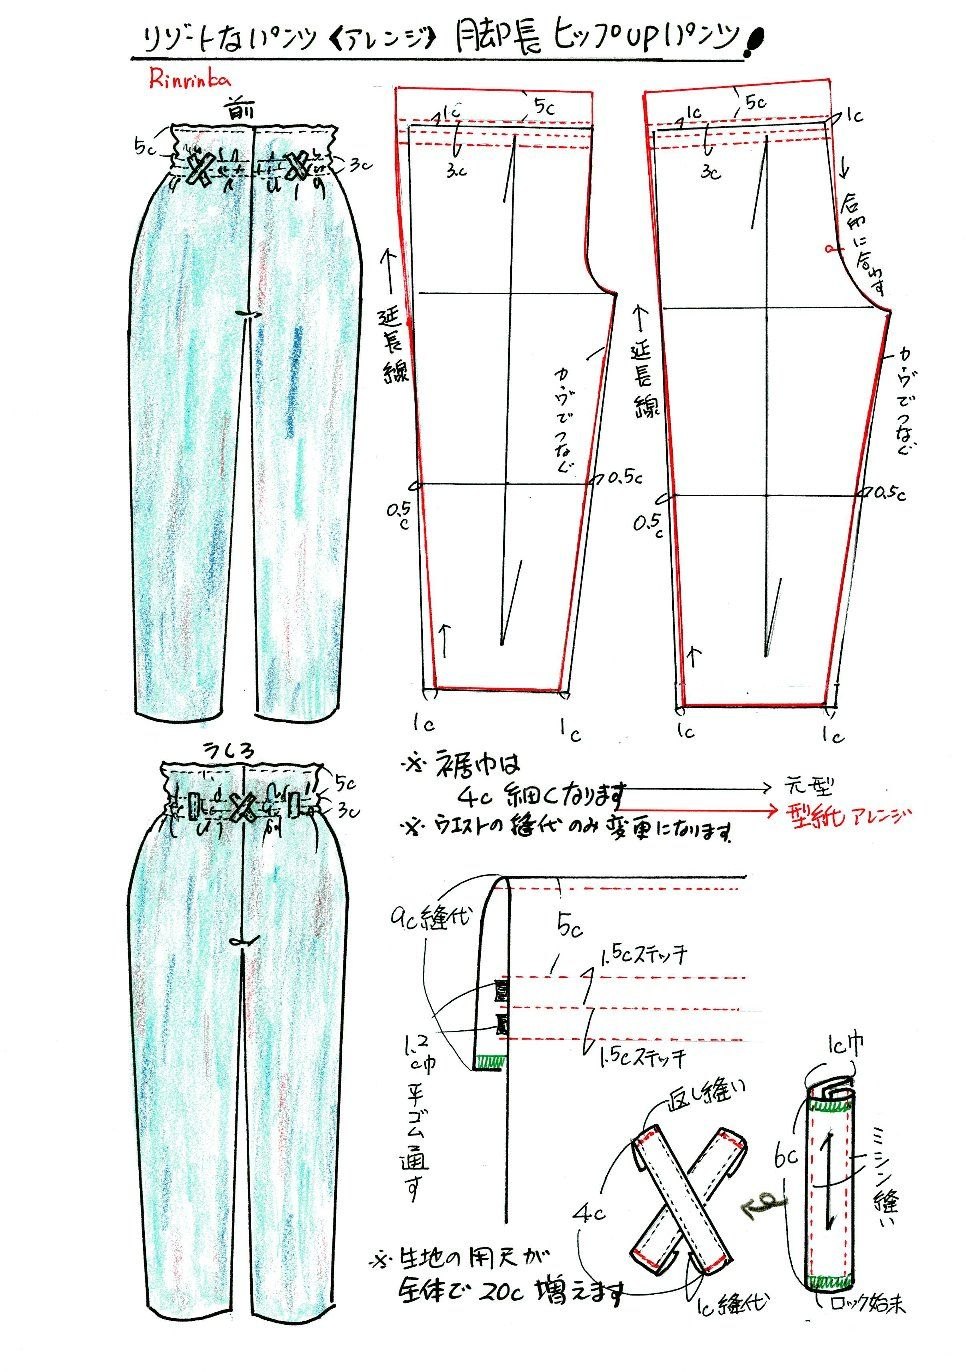 リゾートなパンツ《アレンジ》 脚長ヒップUPパンツ!
Rinrinka
前
5c
3c
1c
5c
3c
↑延長線
カーヴでつなぐ
0.5c
0.5c
1c
1c
1c
5c
1c
3c
合印に合わす
↑延長線
カーヴでつなぐ
0.5c
0.5c
1c
1c
うしろ
5c
3c
※裾巾は
4c 細くなります
※ウエストの縫代のみ変更になります
元型
型紙アレンジ
9c縫代
5c
1.5cステッチ
1.5cステッチ
1.2c巾平ゴム通す
返し縫い
4c
1c縫代
1c巾
6c
ミシン縫い
ロック始末
※生地の用尺が
全体で20c増えます